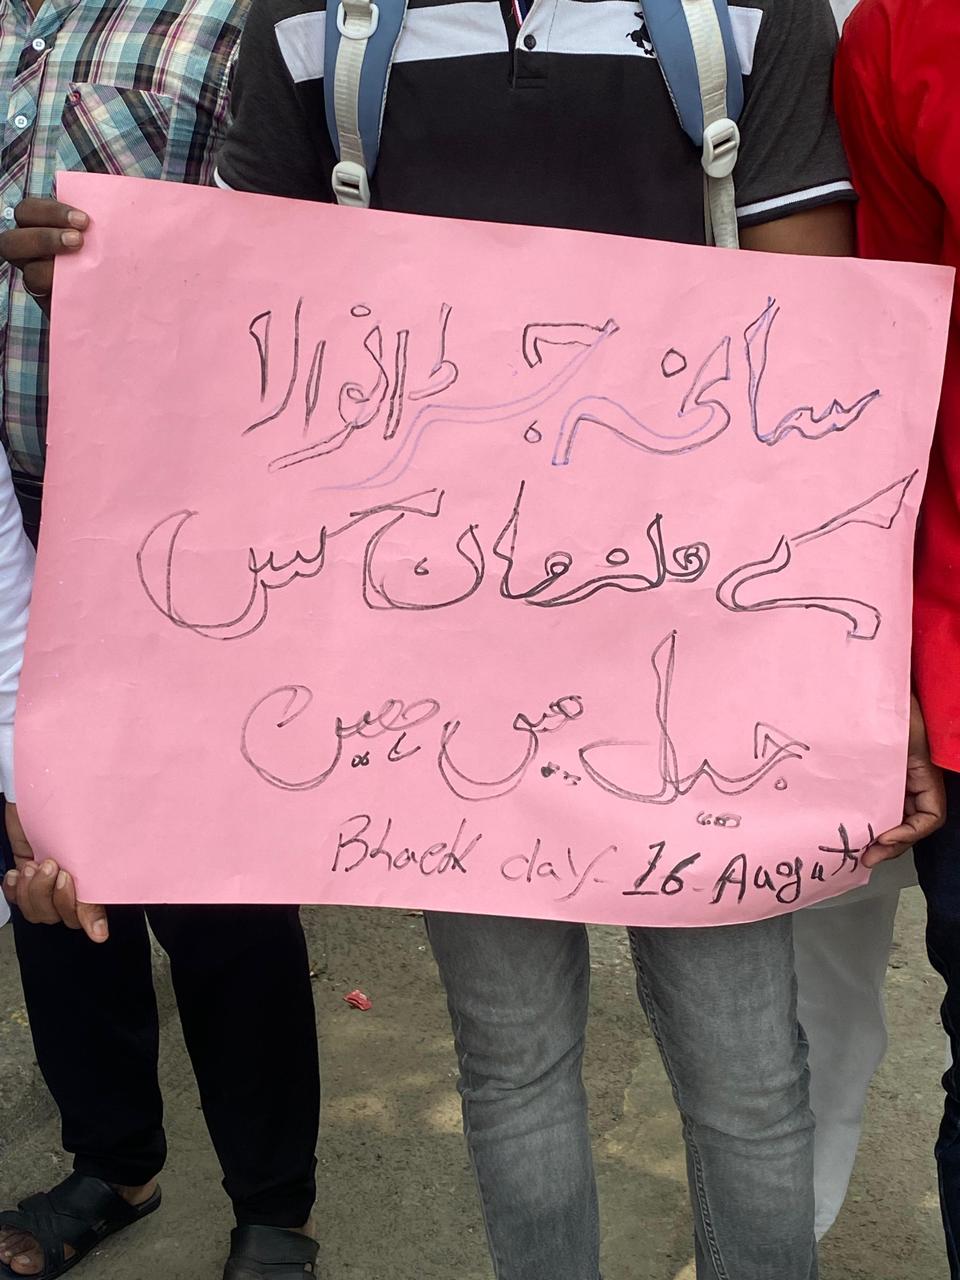 سانحہ جڑانوالا
کے ملزمان کس
جیل میں ہیں
Blaek day - 16 August